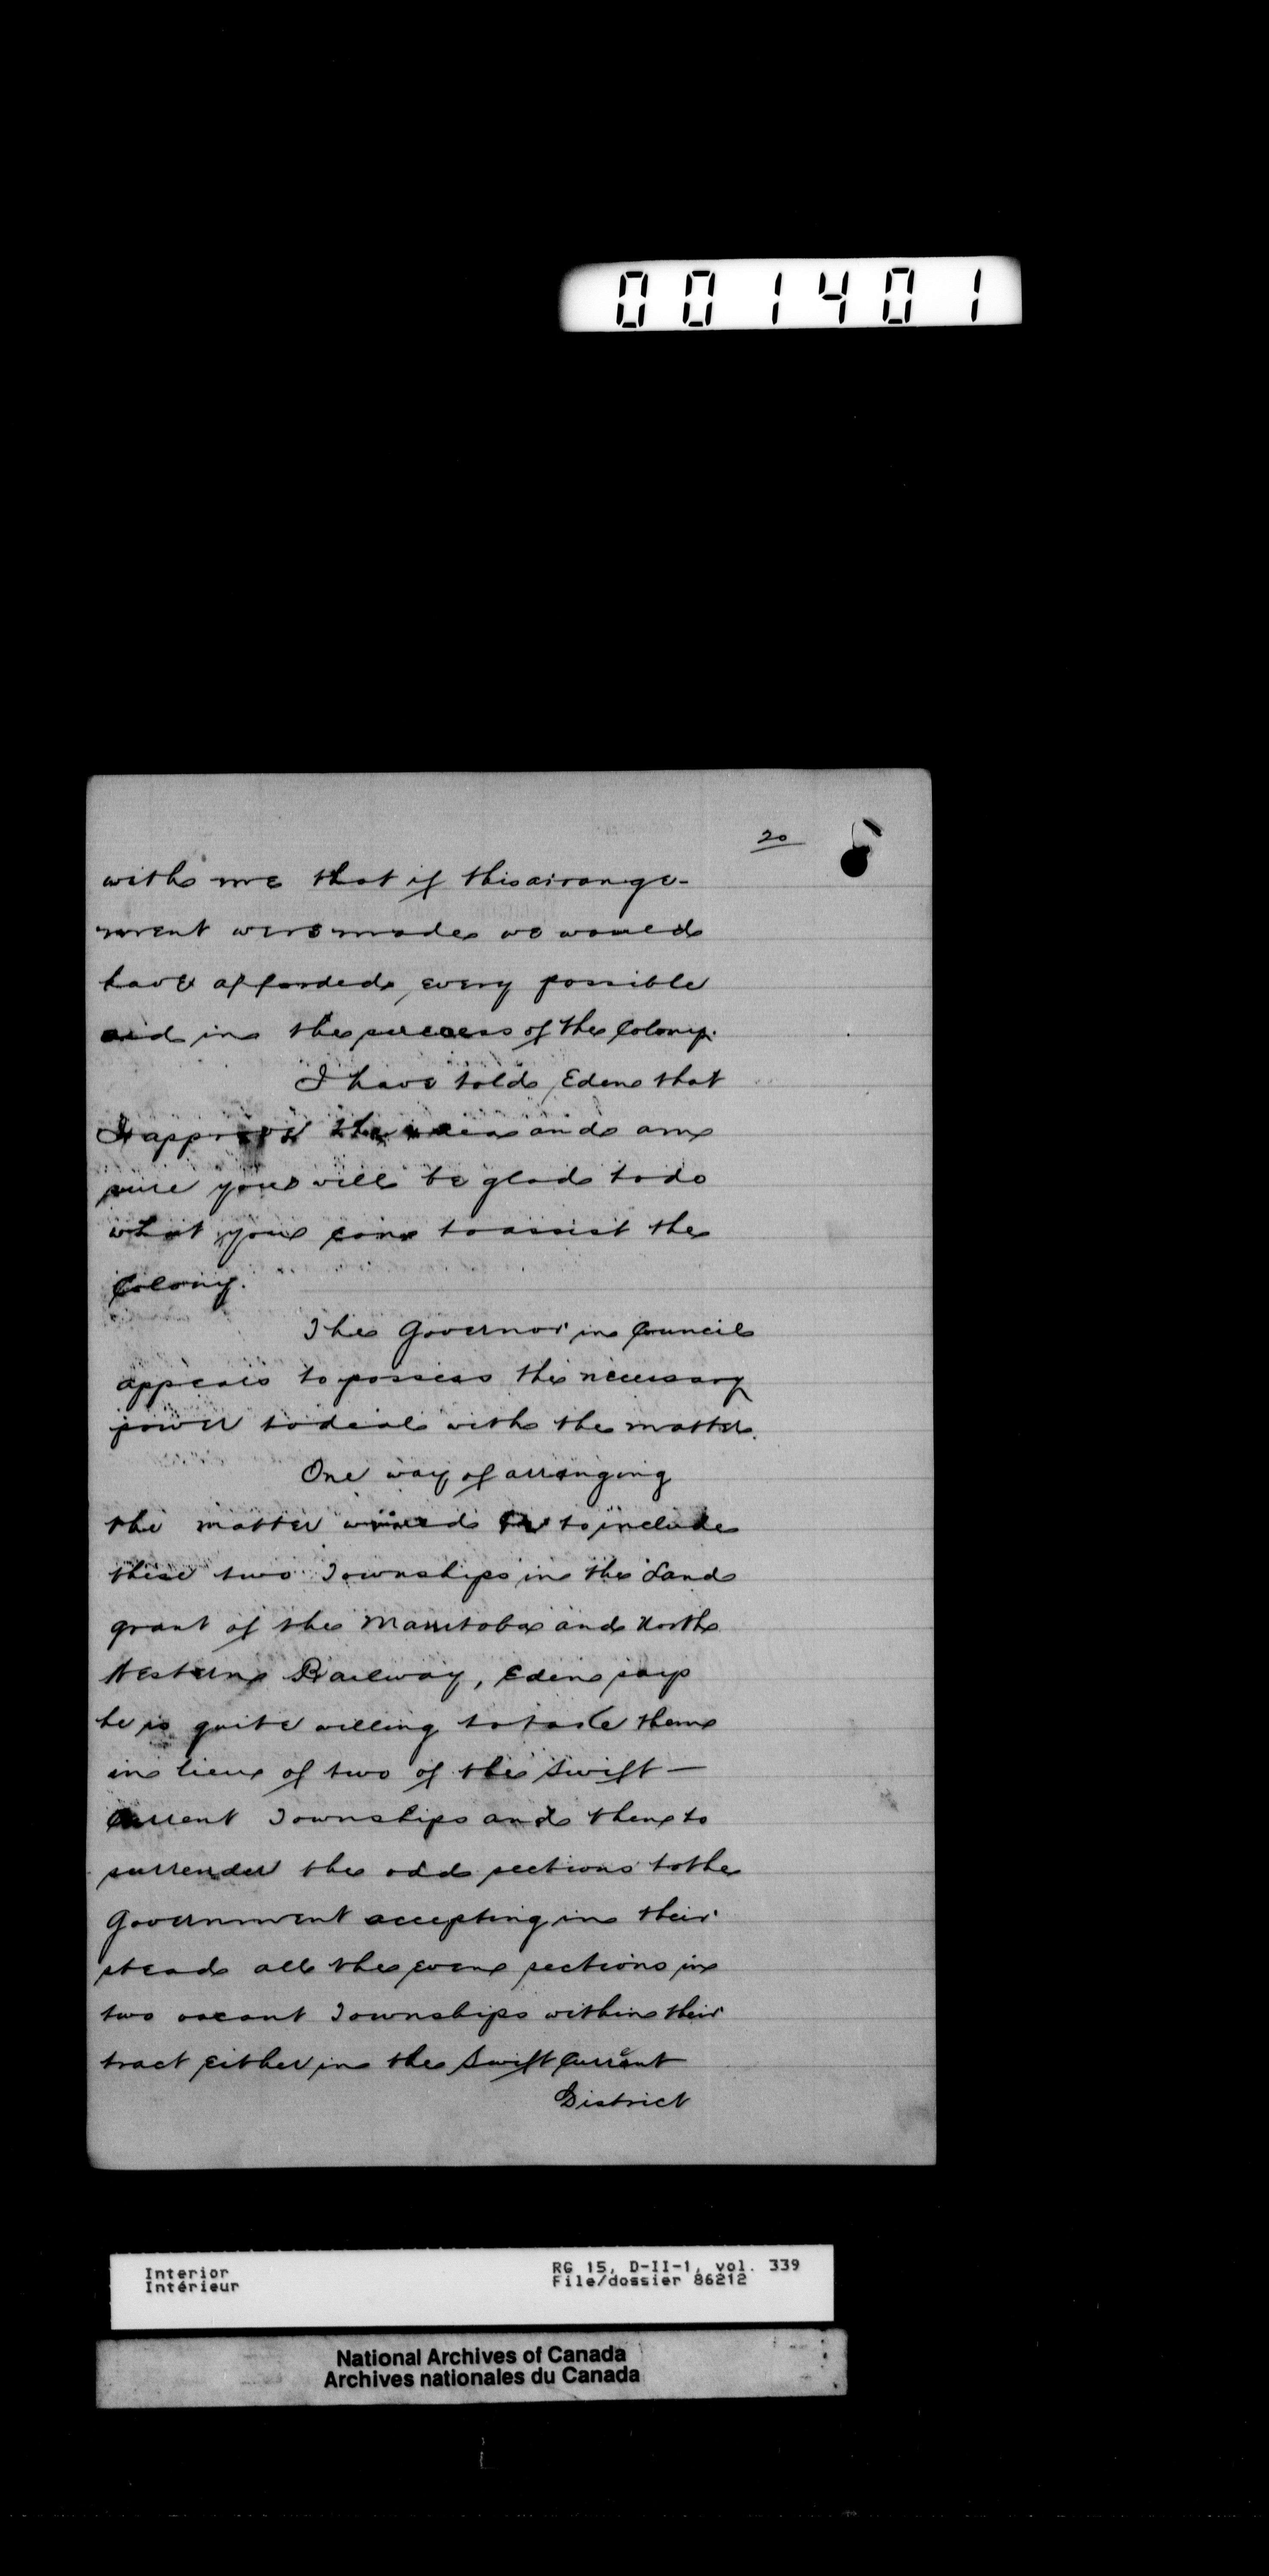 001401
20
with me that if this arrange-
ment were made we would
have afforded every possible
aid in the success of the Colony.
I have told Eden that
I approve the idea and am
sure you will be glad to do
what you can to assist the
Colony.
The Governor in Council
appears to possess the necessary
power to deal with the matter.
One way of arranging
the matter would be to include
these two Townships in the Land
grant of the Manitoba and North
Western Railway, Eden says
he is quite willing to take them
in lieu of two of the Swift-
Current Townships and then to
surrender the odd sections to the
Government accepting in their
stead all the even sections in
two vacant Townships within their
tract either in the Swift Current
District
Interior
Intérieur
RG 15, D-II-1, vol. 339
File/dossier 86212
National Archives of Canada
Archives nationales du Canada